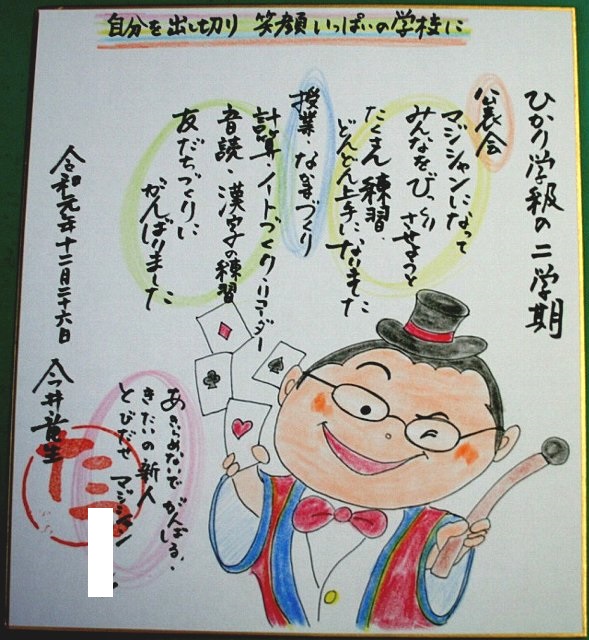 自分を出し切り 笑顔いっぱいの学校に
ひかり学級の二学期
公表会
マジシャンになって
みんなをびっくり
させようと
たくさん練習、
どんどん上手になりました
授業・なかまづくり
計算・ノートづくり・リコーダー
音読・漢字の練習
友だちづくりに
がんばりました
令和元年十二月二十六日
あきらめないで がんばる、
きたいの新人
とびだせ マジシャン